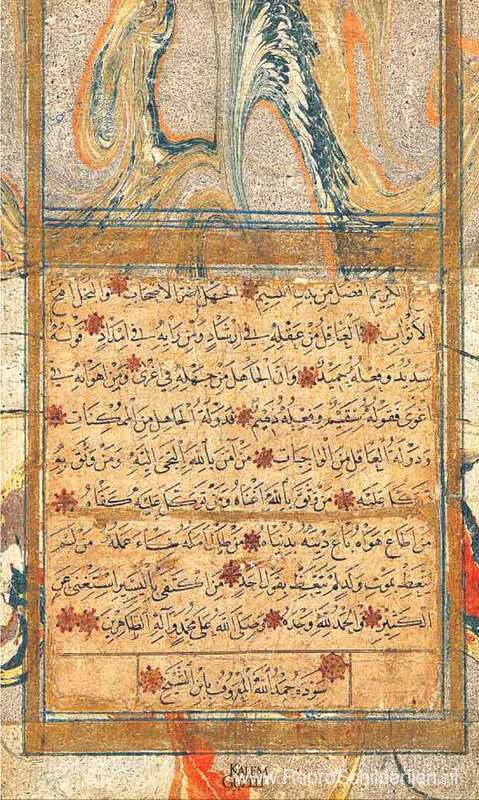 الكريم افضل من بذل اللئيم الجهل اضر الاصحاب والبخل اقبح
الاثواب العاقل من عقله في ارشاد ومن رايه في امداد فقوله
سديد وفعله حميد وان الجاهل من جهله في ومن اهوائه في
اغوى فقوله سقيم وفعله ذميم فدولة الجاهل من الممكنات
ودولة العاقل من الواجبات من امن بالله التجى اليه ومن وثق به
توكل عليه من وثق بالله اغناه ومن توكل عليه كفاه
من اطاع هواه باع دينه بدنياه من طال امله ساء عمله من لم
يتعظ بموت ولد لم يتعظ بقول احد من اكتفى باليسير استغنى عن
الكثير والحمد لله وحده وصلى الله على محمد وآله الطاهرين
سوده حمد الله المعروف بابن الشيخ
KALEM
GÜZELİ
www.ReproSchilderijen.nl